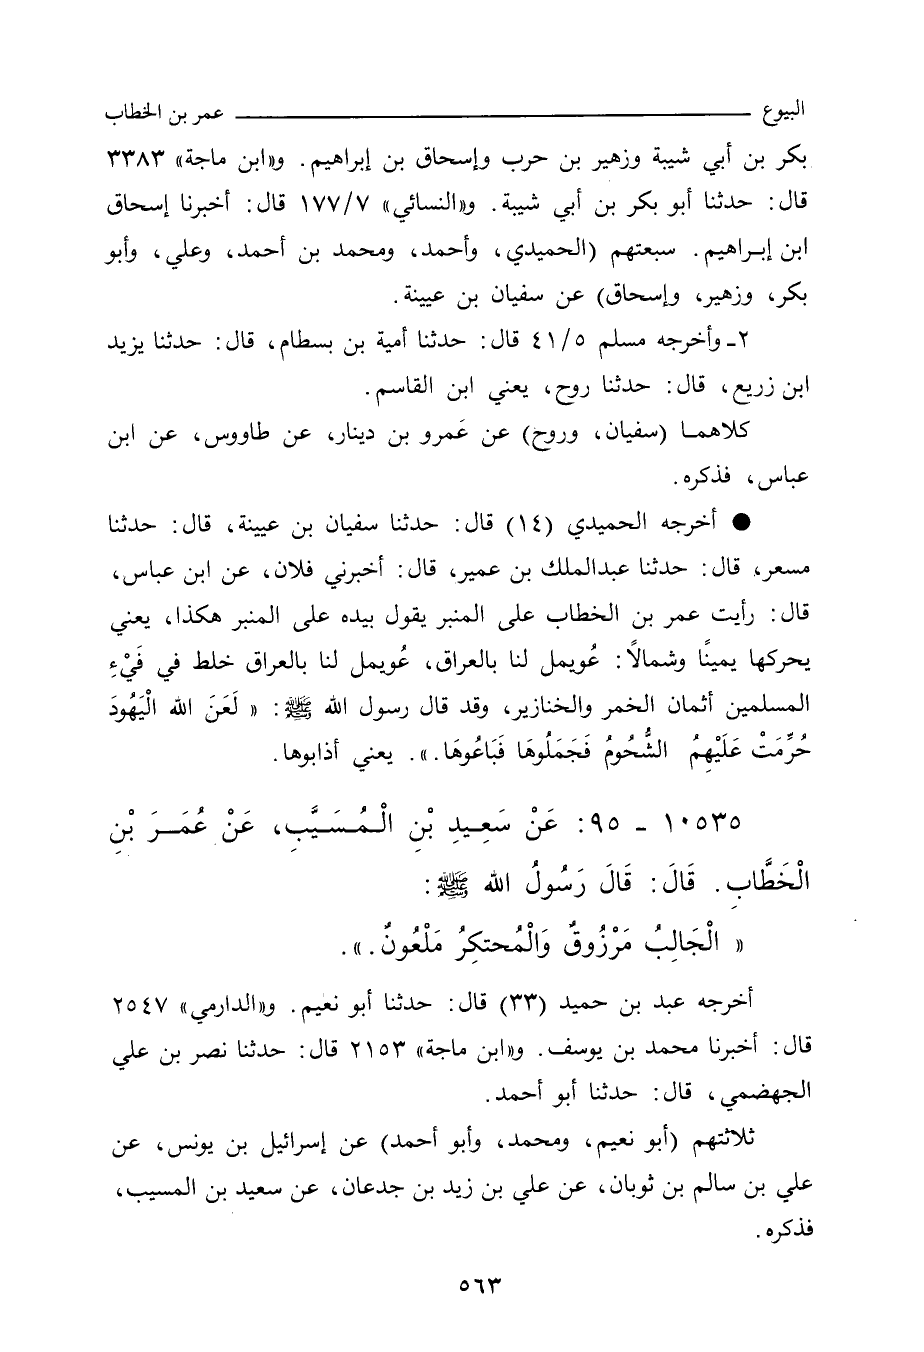 البيوع ــــــــــــــ عمر بن الخطاب
بكر بن أبي شيبة وزهير بن حرب وإسحاق بن إبراهيم. و«ابن ماجة» ٣٣٨٣
قال: حدثنا أبو بكر بن أبي شيبة. و«النسائي» ١٧٧/٧ قال: أخبرنا إسحاق
ابن إبراهيم. سبعتهم (الحميدي، وأحمد، ومحمد بن أحمد، وعلي، وأبو
بكر، وزهير، وإسحاق) عن سفيان بن عيينة.
٢ـ وأخرجه مسلم ٤١/٥ قال: حدثنا أمية بن بسطام، قال: حدثنا يزيد
ابن زريع، قال: حدثنا روح، يعني ابن القاسم.
كلاهما (سفيان، وروح) عن عَمرو بن دينار، عن طاووس، عن ابن
عباس، فذكره.
● أخرجه الحميدي (١٤) قال: حدثنا سفيان بن عيينة، قال: حدثنا
مسعر، قال: حدثنا عبدالملك بن عمير، قال: أخبرني فلان، عن ابن عباس،
قال: رأيت عمر بن الخطاب على المنبر يقول بيده على المنبر هكذا، يعني
يحركها يمينًا وشمالًا: عُويمل لنا بالعراق، عُويمل لنا بالعراق خلط في فَيْءِ
المسلمين أثمان الخمر والخنازير، وقد قال رسول الله ﷺ: « لَعَنَ الله الْيَهُودَ
حُرِّمَتْ عَلَيْهِمُ الشُّحُومُ فَجَمَلُوهَا فَبَاعُوهَا.». يعني أذابوها.
١٠٥٣٥ ـ ٩٥: عَنْ سَعِيدِ بْنِ الْمُسَيَّبِ، عَنْ عُمَرَ بْنِ
الْخَطَّابِ. قَالَ: قَالَ رَسُولُ الله ﷺ:
« الْجَالِبُ مَرْزُوقٌ وَالْمُحتكِرُ مَلْعُونٌ.».
أخرجه عبد بن حميد (٣٣) قال: حدثنا أبو نعيم. و«الدارمي» ٢٥٤٧
قال: أخبرنا محمد بن يوسف. و«ابن ماجة» ٢١٥٣ قال: حدثنا نصر بن علي
الجهضمي، قال: حدثنا أبو أحمد.
ثلاثتهم (أبو نعيم، ومحمد، وأبو أحمد) عن إسرائيل بن يونس، عن
علي بن سالم بن ثوبان، عن علي بن زيد بن جدعان، عن سعيد بن المسيب،
فذكره.
٥٦٣